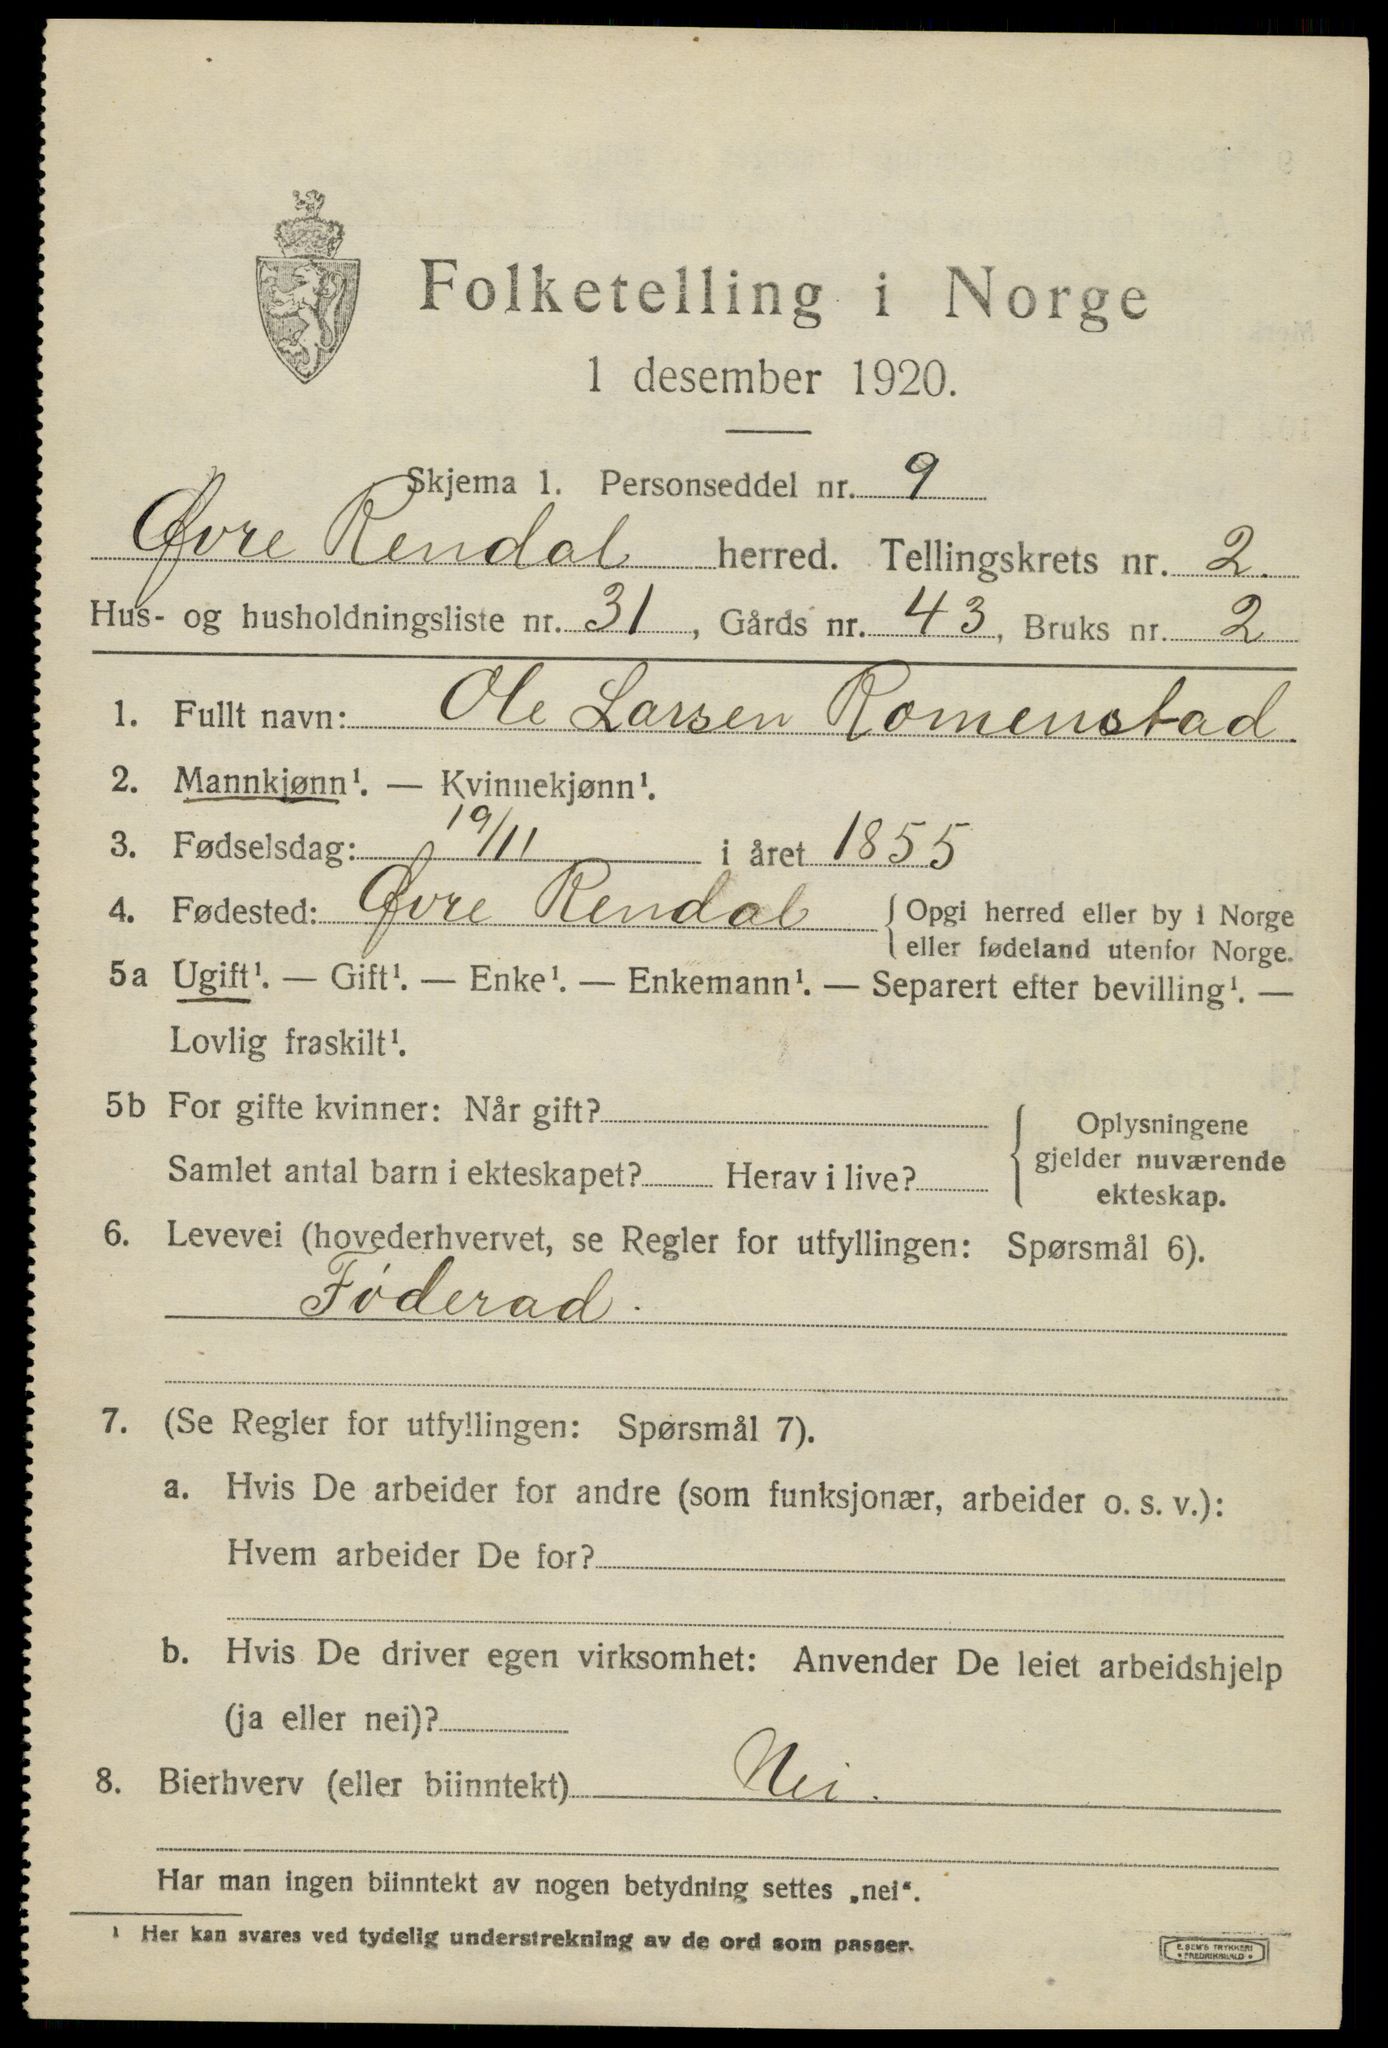 Folketelling i Norge
1 desember 1920.
Skjema 1. Personseddel nr. 9
Øvre Rendal herred. Tellingskrets nr. 2.
Hus- og husholdningsliste nr. 31, Gårds nr. 43, Bruks nr. 2
1. Fullt navn: Ole Larsen Romenstad
2. Mannkjønn¹. — Kvinnekjønn¹.
3. Fødselsdag: 19/11 i året 1855
4. Fødested: Øvre Rendal { Opgi herred eller by i Norge
eller fødeland utenfor Norge.
5a Ugift¹. — Gift¹. — Enke¹. — Enkemann¹. — Separert efter bevilling¹. —
Lovlig fraskilt¹.
5b For gifte kvinner: Når gift?
Samlet antal barn i ekteskapet? Herav i live?
{ Oplysningene
gjelder nuværende
ekteskap.
6. Levevei (hovederhvervet, se Regler for utfyllingen: Spørsmål 6).
Føderad.
7. (Se Regler for utfyllingen: Spørsmål 7).
a. Hvis De arbeider for andre (som funksjonær, arbeider o. s. v.):
Hvem arbeider De for?
b. Hvis De driver egen virksomhet: Anvender De leiet arbeidshjelp
(ja eller nei)?
8. Bierhverv (eller biinntekt) Nei.
Har man ingen biinntekt av nogen betydning settes „nei“.
¹ Her kan svares ved tydelig understrekning av de ord som passer.
E. SEM'S TRYKKERI
FREDRIKSHALD